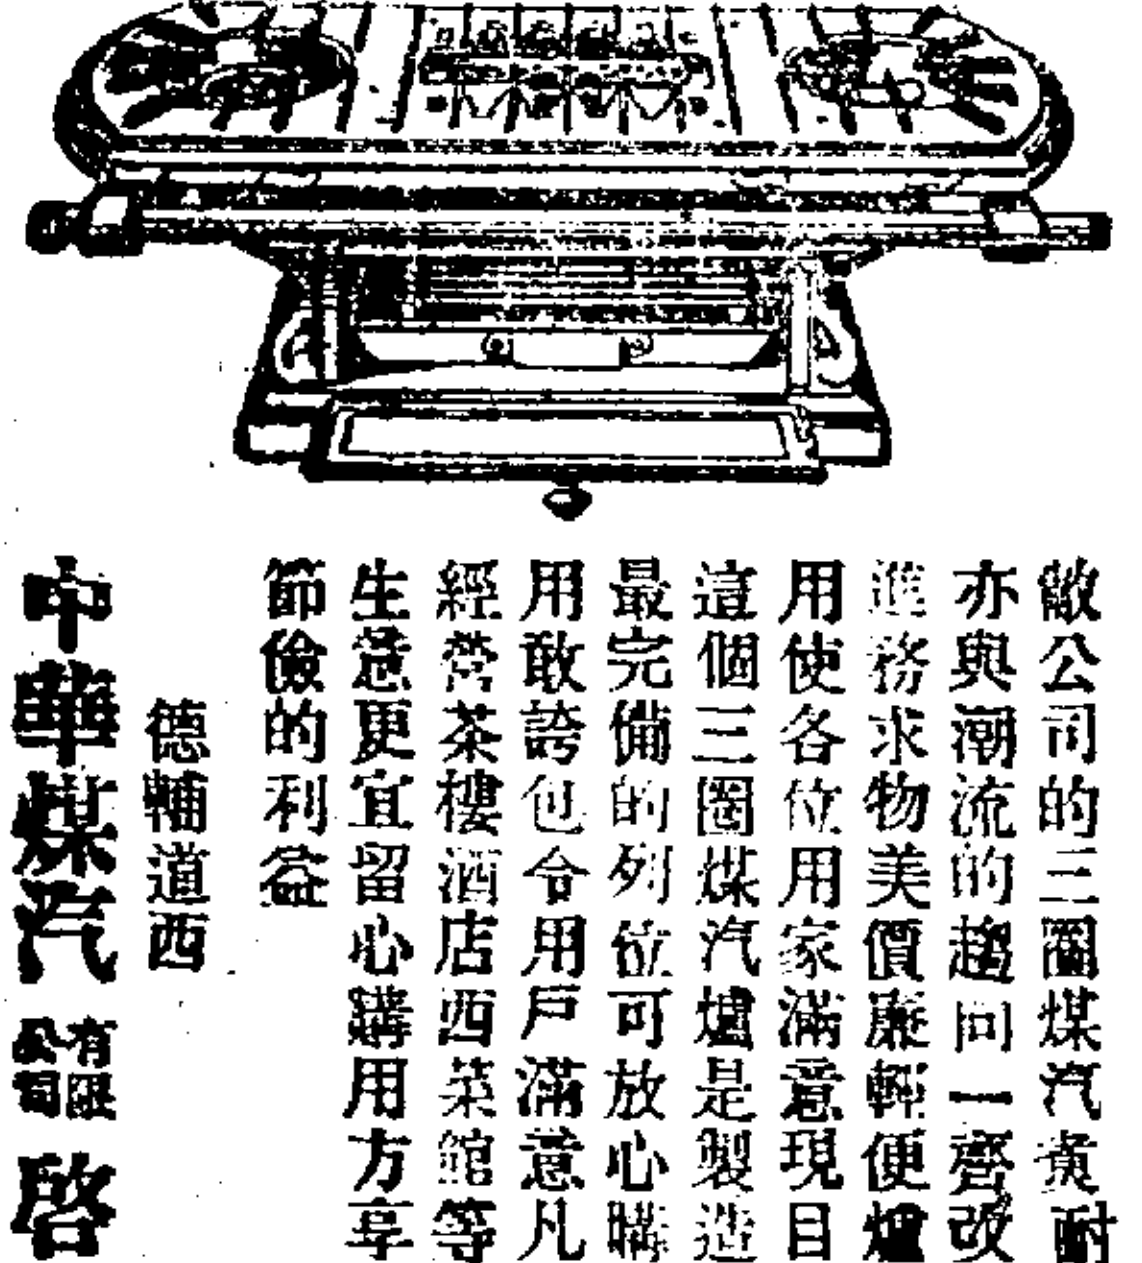 敝公司的三圈煤汽煮耐
亦與潮流的趨向一齊改
進務求物美價廉輕便爐
用使各位用家滿意現目
這個三圈煤汽爐是製造
最完備的列位可放心購
用敢誇包令用戶滿意凡
經營茶樓酒店西菜館等
生意更宜留心購用方享
節儉的利益
德輔道西
中華煤汽有限公司啓